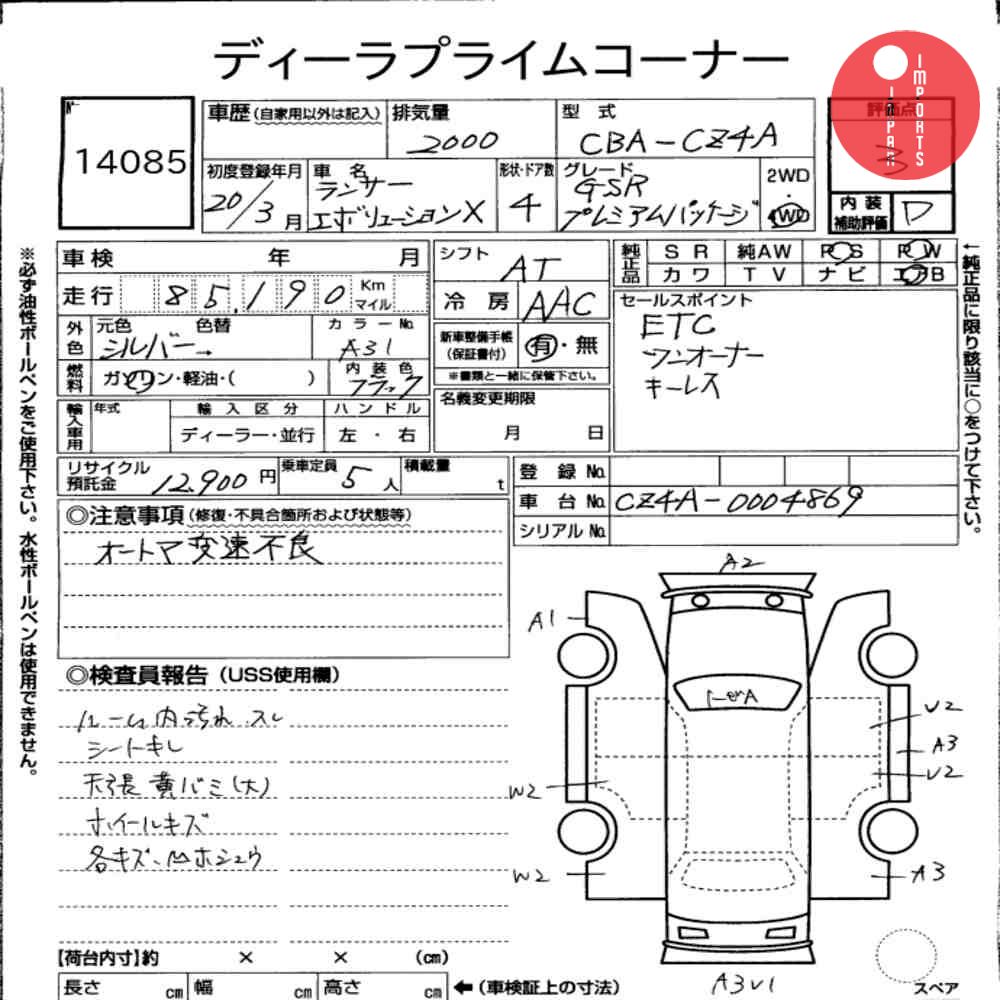 ディーラプライムコーナー
IMPORTS
JAPAN
No
14085
車歴（自家用以外は記入）
排気量
2000
型 式
CBA-CZ4A
評価点
3
初度登録年月
20/3月
車 名
ランサー
エボリューションX
形状・ドア数
4
グレード
GSR
プレミアムパッケージ
2WD
4WD
内 装
補助評価
D
※必ず油性ボールペンをご使用下さい。水性ボールペンは使用できません。
車検 年 月
走行 85,190 Km マイル
外色 元色 色替
シルバー→
カラーNo.
A31
燃料 ガソリン・軽油・( )
内装色
ブラック
輸入車用 年式
輸入区分 ハンドル
ディーラー・並行 左・右
シフト AT
冷房 AAC
新車整備手帳
（保証書付） 有・無
※書類と一緒に保管下さい。
名義変更期限
月 日
純正品 SR 純AW PS PW
カワ TV ナビ エアB
セールスポイント
ETC
ワンオーナー
キーレス
←純正品に限り該当に○をつけて下さい。
リサイクル
預託金 12,900円
乗車定員 5人
積載量 t
登録No.
車台No. CZ4A-0004869
シリアルNo.
◎注意事項（修復・不具合箇所および状態等）
オートマ変速不良
◎検査員報告（USS使用欄）
ルーム内汚れ.スレ
シートキレ
天張黄バミ(大)
ホイールキズ
各キズ、凹ホシュウ
A2
A1
U2
A3
U2
W2
W2
A3
A3U1
スペア
【荷台内寸】約 × × （cm）
長さ cm 幅 cm 高さ cm ←（車検証上の寸法）